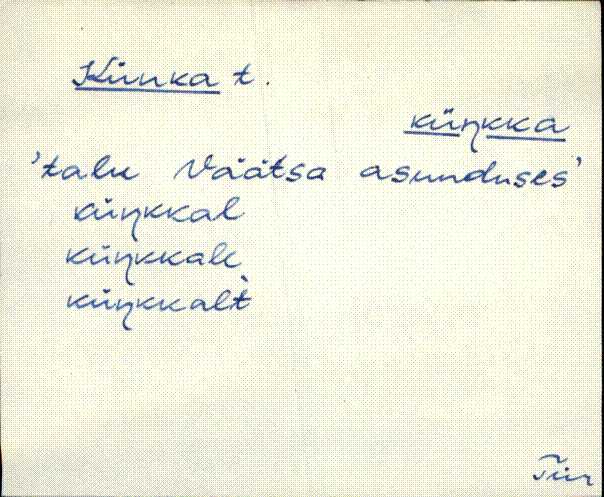 Künka t.
küŋkka
'talu Väätsa asunduses'
küŋkkal
küŋkkale
küŋkkalt
Tür